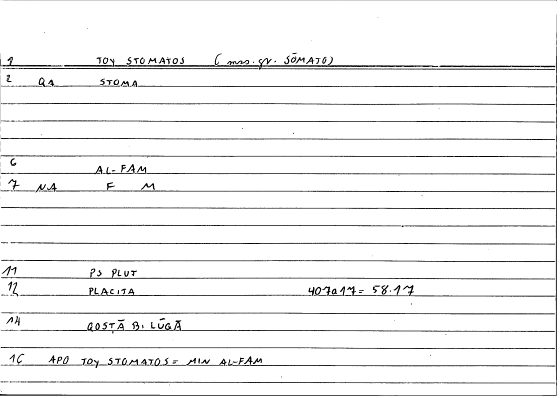 1 TOY STOMATOS (mss. gr. SŌMATO)
2 QA STOMA
6 AL-FAM
7 NA F M
11 PS PLUT
12 PLACITA 407a17= 58.17
14 QOSṬĀ B. LŪQĀ
16 APO TOY STOMATOS = MIN AL-FAM